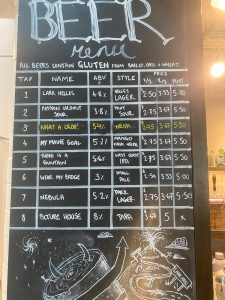 BEER
menu
ALL BEERS CONTAIN GLUTEN FROM BARLEY, OATS & WHEAT.
PRICE
TAP NAME ABV STYLE 1/2 2/3 PINT
1 LARK HILLES 4.8% HELLES LAGER 2.50 3.33 5.00
2 PASSION COCONUT SOUR 3.8% FRUIT SOUR 2.75 3.67 5.50
3 WHAT A 5.4% NEIPA 2.75 3.67 5.50
4 MY MAINE GOAL 5.2% PALE 2.75 3.67 5.50
5 THERE IS A FOUNTAIN 5.6% WEST COAST IPA 2.75 3.67 5.50
6 WEAR MY BRIDGE 3% SMALL PALE 2.50 3.33 5.00
7 NEBULA 5.2% DARK LAGER 2.75 3.67 5.50
8 PICTURE HOUSE 8% DIPA 3.67 5 X